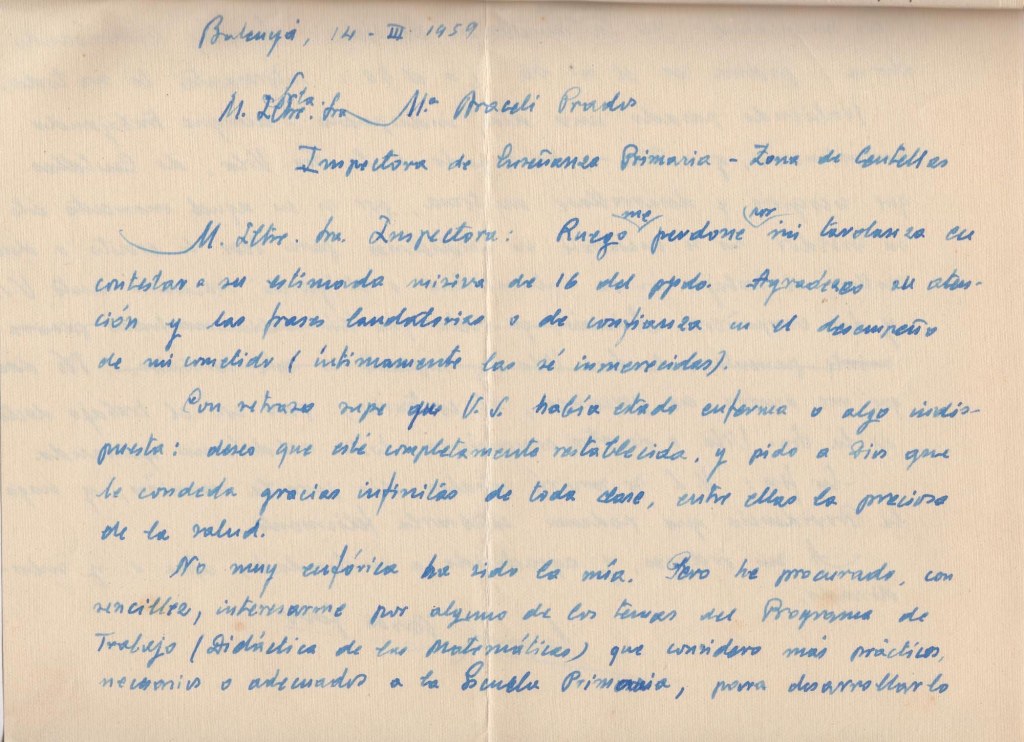 Balenyá, 14 - III - 1959
M. Iltre. Srta. Mª Araceli Prados
Inspectora de Enseñanza Primaria - Zona de Centellas
M. Iltre. Sra. Inspectora: Ruego me perdone por mi tardanza en
contestar a su estimada misiva de 16 del ppdo. Agradezco su aten-
ción y las frases laudatorias o de confianza en el desempeño
de mi cometido (íntimamente las sé inmerecidas).
Con retraso supe que V. S. había estado enferma o algo indis-
puesta: deseo que esté completamente restablecida, y pido a Dios que
le conceda gracias infinitas de toda clase, entre ellas la preciosa
de la salud.
No muy eufórica ha sido la mía. Pero he procurado, con
sencillez, interesarme por alguno de los temas del Programa de
Trabajo (Didáctica de las Matemáticas) que considero más prácticos,
necesarios o adecuados a la Escuela Primaria, para desarrollarlo